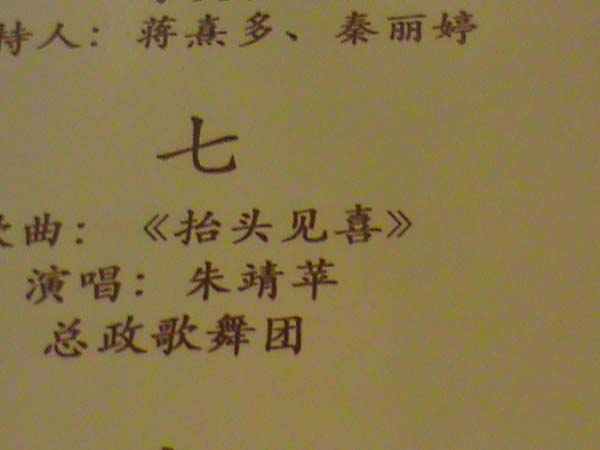 持人：蒋熹多、秦丽婷
七
歌曲：《抬头见喜》
演唱：朱靖苹
总政歌舞团